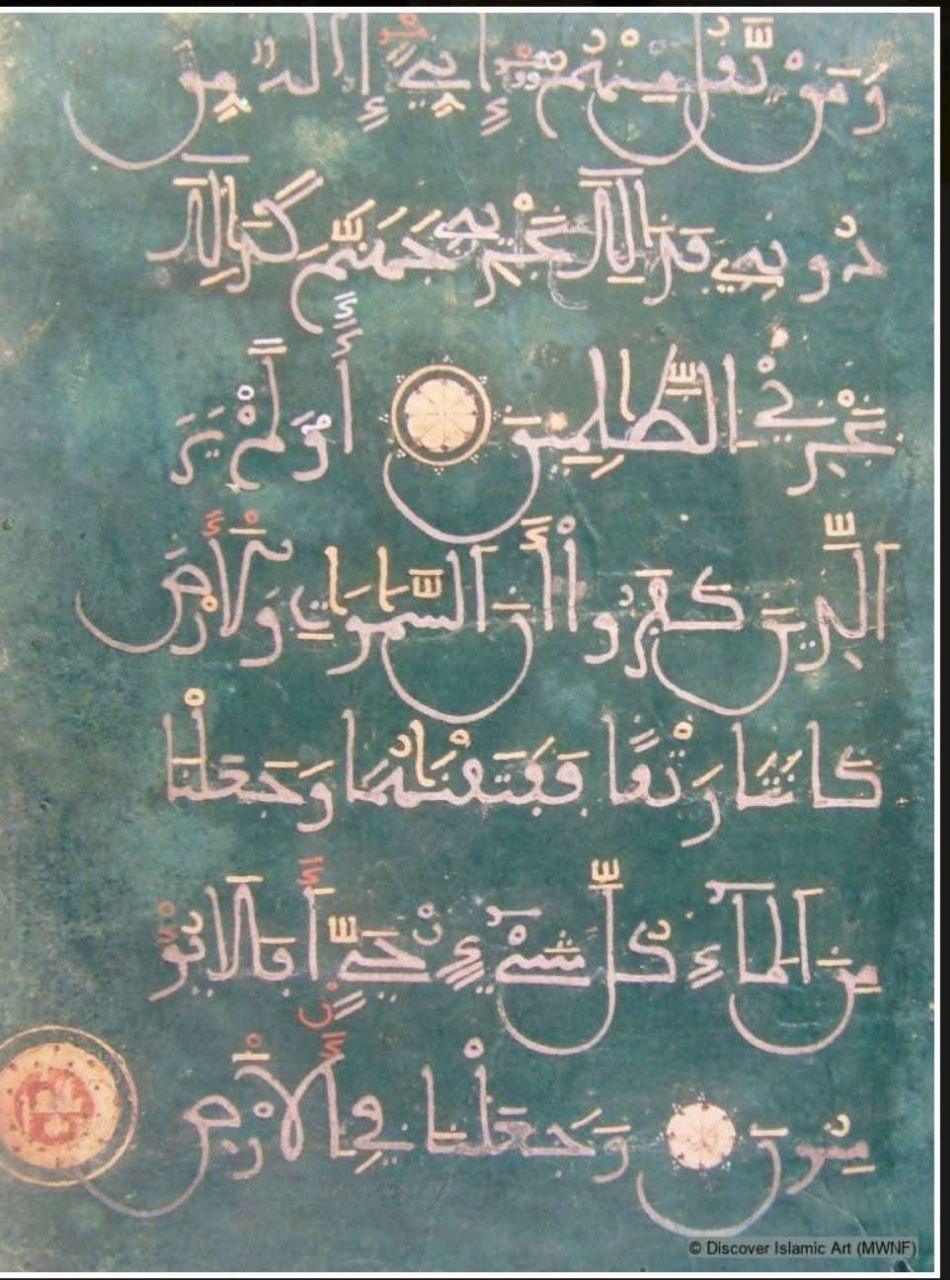 وَمَنْ يَّقُلْ مِنْهُمُ إِنِّيَ إِلَٰهٌ مِّن
دُونِهِ فَذَٰلِكَ نَجْزِيهِ جَهَنَّمَ كَذَٰلِكَ
نَجْزِي الظَّٰلِمِينَ أَوَلَمْ يَرَ
الَّذِينَ كَفَرُوا أَنَّ السَّمَٰوَٰتِ وَالْأَرْضَ
كَانَتَا رَتْقًا فَفَتَقْنَٰهُمَا وَجَعَلْنَا
مِنَ الْمَاءِ كُلَّ شَيْءٍ حَيٍّ أَفَلَا يُو
مِنُونَ وَجَعَلْنَا فِي الْأَرْضِ
© Discover Islamic Art (MWNF)